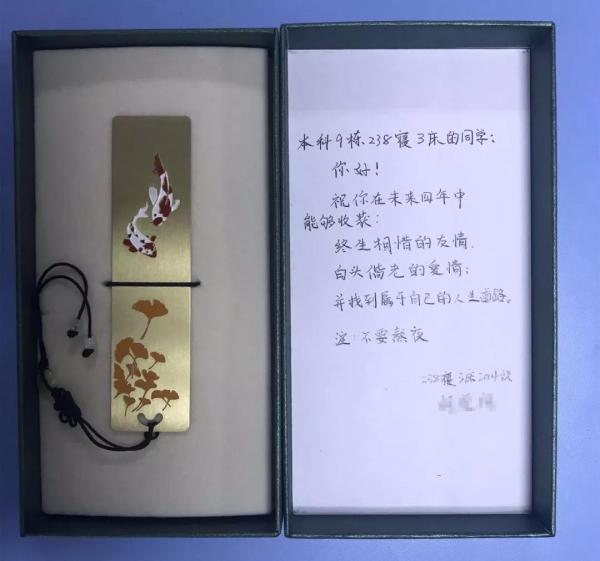 本科9栋238寝3床的同学:
你好!
祝你在未来四年中
能够收获:
终生相惜的友情,
白头偕老的爱情;
并找到属于自己的人生道路。
注:不要熬夜
238寝3床2014级